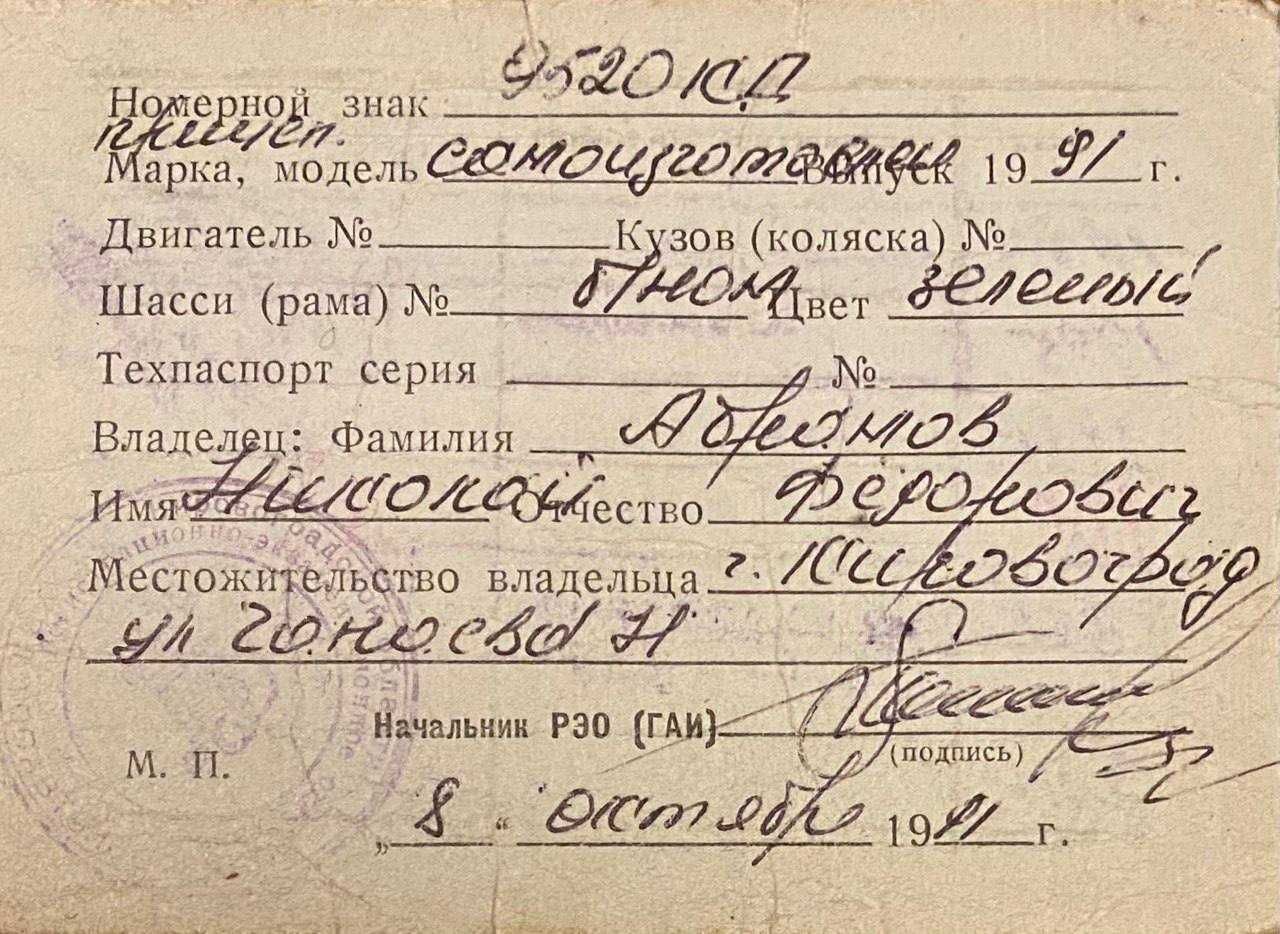 Номерной знак 9520 КД
прицеп.
Марка, модель самоизготовлен Выпуск 1991 г.
Двигатель № Кузов (коляска) №
Шасси (рама) № б/ном Цвет зеленый
Техпаспорт серия №
Владелец: Фамилия Абрамов
Имя Николай Отчество Федорович
Местожительство владельца г. Кировоград
ул
Начальник РЭО (ГАИ)
(подпись)
М. П.
„8“ октября 1991 г.